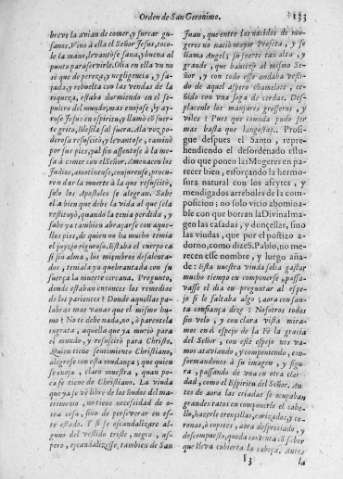 Orden de San Geronimo. 133
breve la avian de comer, y surcar gu-
sanos. Vino à ella el Señor Jesus, toco-
le la mano, levantose sana, y buena al
punto para servirle. Olia en ella un no
sè que de pereza, y negligencia, y fa-
jada, y rebuelta con las vendas de la
riqueza, estaba durmiendo en el se-
pulcro del mundo; mas
rose Jesus en espiritu, y llamò cõ suer-
te grito, Blesila sal fuera. A la voz po-
derosa resucitò, y levantose, y caminò
por sus pies, y al fin assentose à la me-
sa à comer con el Señor. Amenacen los
Judios, amotinense, conjurense, procu-
ren dar la muerte à la que resucitò,
solo los Apostoles se alegran. Sabe
ella bien que debe la vida al que se la
restituyò, quando la tenia perdida, y
sabe ya tambien abraçarse con aque-
llos pies, de quien no ha mucho temia
el juyzio riguroso. Estaba el cuerpo ca-
si sin alma, los miembros desalenta-
dos, tenialaya quebrantada con su
fuerça la muerte cercana. Pregunto,
donde estaban entonces los remedios
de los parientes? Donde aquellas pa-
labras mas vanas que el mismo hu-
mo? No te debe nada, no, ò parentela
ingrata, aquella que ya muriò para
el mundo, y resucitò para Christo.
Quien tiene sentimiento Christiano,
alegrese con esta mudança; que quien
se enoja, claro muestra, quan po-
ca se tiene de Christiano. La viuda
que ya se viò libre de los lindos del ma-
trimonio, no tiene necessidad de o-
tra cosa, sino de perseverar en es-
te estado. Y si se escandalizare al-
guno del vestido triste, negro, as-
pero, escandalizese, tambien de San
Juan, que entre los nacidos de mu-
geres no nació mayor Profeta, y se
llama Angel; su suerte tan alta, y
grande, que bautizò al mismo Se-
ñor, y con todo esso andaba vesti-
do de aquel aspero chamelote, ce-
ñido con una soga de cerdas. Des-
placenle los manjares groseros, y
viles? Pues que comida pudo ser
mas basta que langostas. Prosi-
gue despues el Santo, repre-
hendiendo el desordenado estu-
dio que ponen las Mugeres en pare-
cer bien, esforçando la hermo-
sura natural con los afeytes, y
mendigados arreboles de la com-
posicion; no solo vicio abomina-
ble con que borran la Divina Ima-
gen las casadas, y donçellas, sino
las viudas, que por el postizo a-
dorno, como dize S. Pablo, no me-
recen esse nombre, y luego aña-
de: Esta nuestra viuda solia gastar
mucho tiempo en componerse, passa-
vasse el dia en preguntar al espe-
jo si le faltaba algo; aora con san-
ta confiança dize: Nosotros todos
sin velo, y con clara vista mira-
mos en el espejo de la Fè la gracia
del Señor, con este espejo nos va-
mos aviando, y componiendo, con-
formandonos à su imagen, y figu-
ra, passando de una en otra cla-
ridad, como el Espiritu del Señor. An-
tes de aora las criadas se ocupaban
grandes ratos en componerle el cabe-
llo, hazerle crençillas, 
aora depreciado, y
descompuesto, queda contenta cõ saber
que lleva cubierta la cabeça. Antes
I 3 la